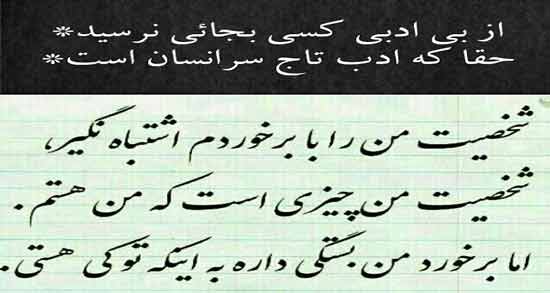 از بی ادبی کسی بجائی نرسید*
حقا که ادب تاج سرانسان است*
شخصیت من را با برخوردم اشتباه نگیر،
شخصیت من چیزی است که من هستم .
اما برخورد من بستگی داره به اینکه تو کی هستی.